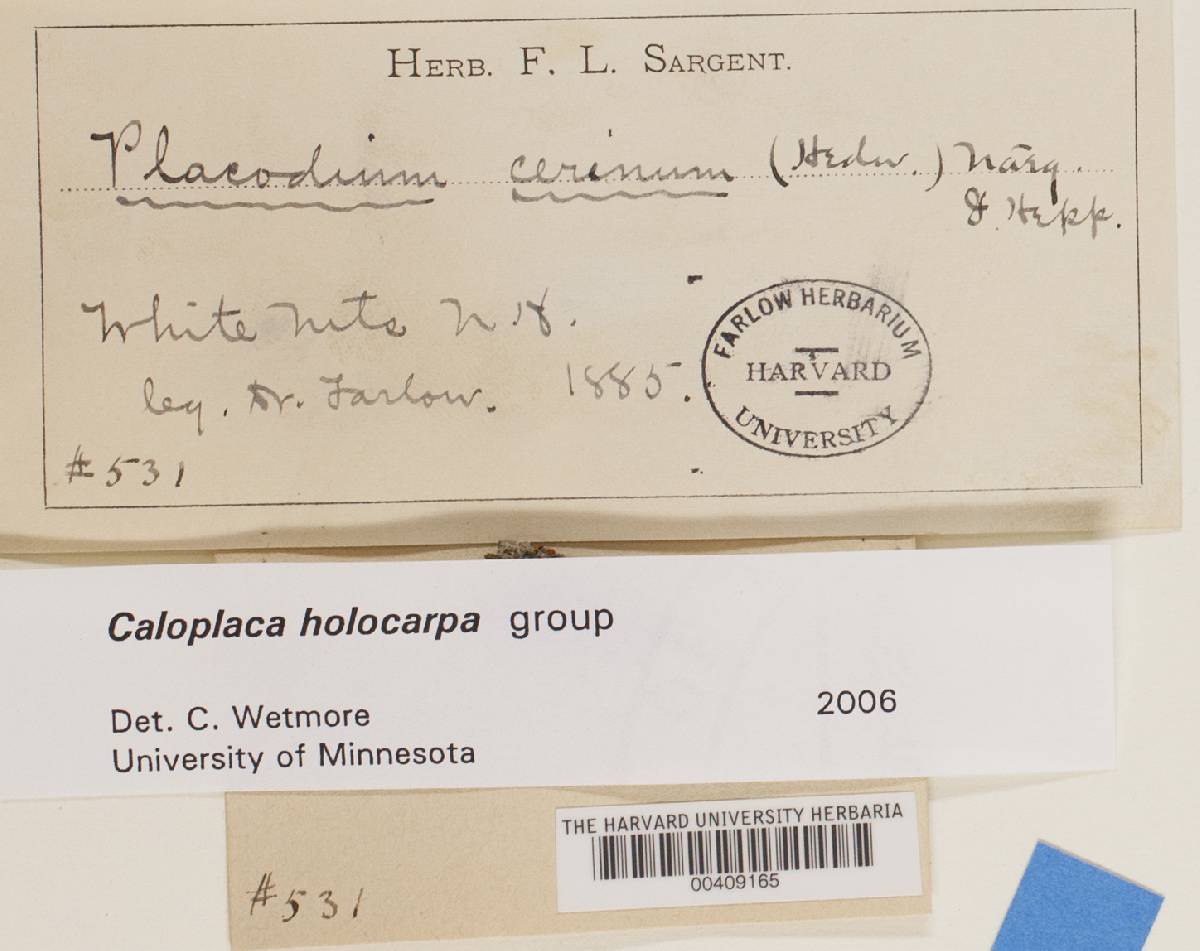 HERB. F. L. SARGENT.
Placodium cerinum (Hedw.) Naeg.
& Hepp.
White Mts N.H.
leg. Dr. Farlow. 1885.
FARLOW HERBARIUM
HARVARD
UNIVERSITY
#531
Caloplaca holocarpa group
Det. C. Wetmore 2006
University of Minnesota
THE HARVARD UNIVERSITY HERBARIA
00409165
#531